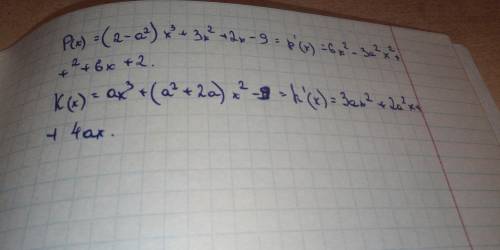 P(x) = (2-a²) x³ + 3x² + 2x - 9 = P'(x) = 6x² - 3a²x² +
+² + 6x + 2.
K(x) = ax³ + (a² + 2a) x² - 9 = k'(x) = 3ax² + 2a²x +
+ 4ax.